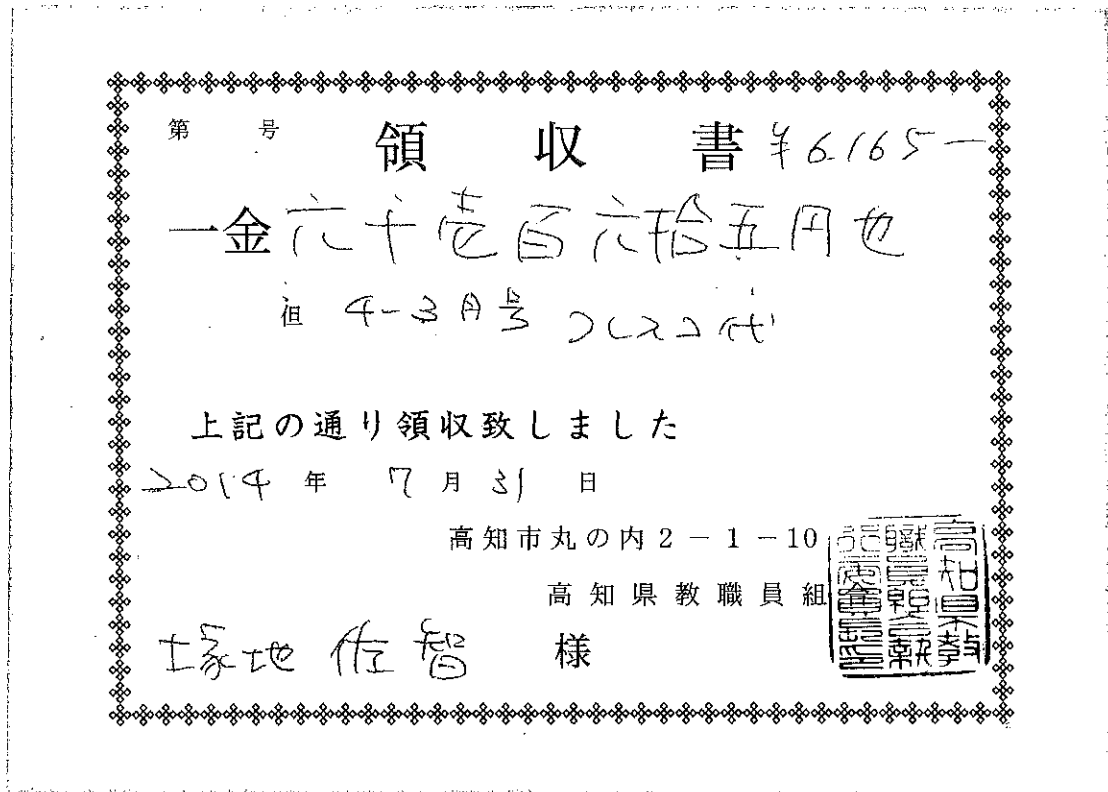 第 号 領収書 ¥6.165-
一金 六千壱百六拾五円也
但 4-3月号 クレスコ代
上記の通り領収致しました
2014年 7月31日
高知市丸の内2-1-10
高知県教職員組合
塚地 佐智 様